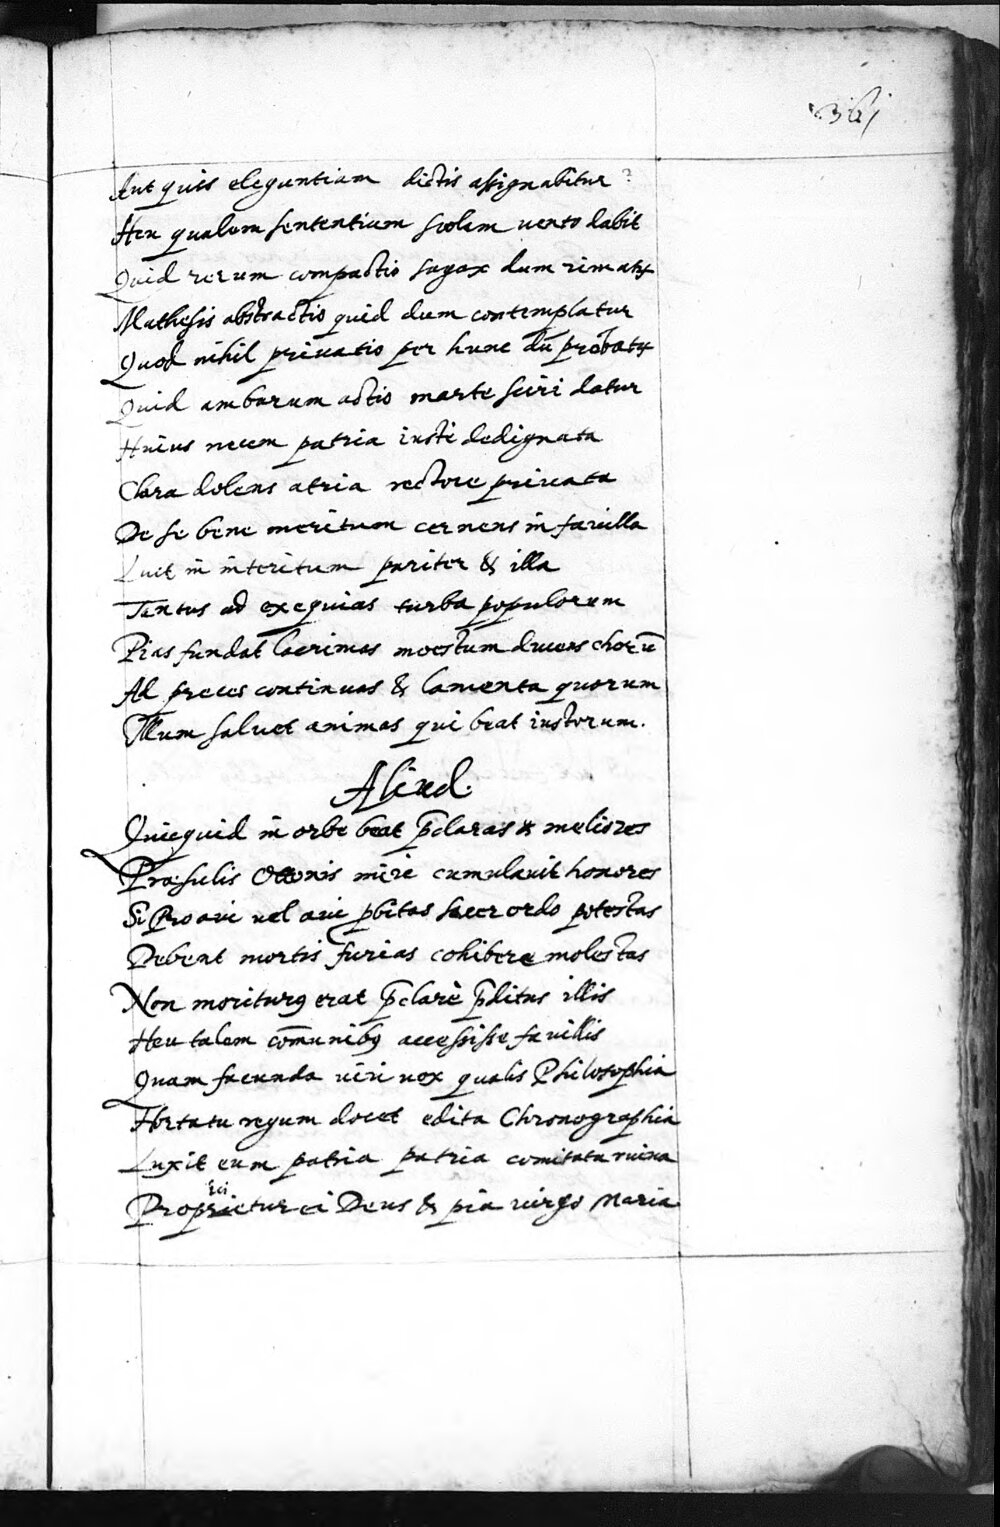 361
Aut quis eleguntiam dictis assignabitur ?
Heu qualem sententiam scolam uento dabit
Quid rerum compactio sagax dum rimatr
Mathesis abstractio quid dum contemplatur
Quod nihil priuatio per hunc dū probatr
Quid ambarum actio marte sciri datur
Huius necem patria iusti dedignata
Clara dolens atria rectore priuata
De se bene meritum cernens in fauilla
Luit in interitum pariter & illa
Tantus ad exequias turba populorum
Pias fundat lacrimas moestum ducens chorū
Ad preces continuas & lamenta quorum
Illum saluet animas qui beat iustorum.
Aliud.
Quicquid in orbe beat p̄claras & meliores
Præsulis Ottonis mire cumulauit honores
Si Proaui uel aui pbitas sacer ordo potestas
Debeat mortis furias cohibere molestas
Non moriturꝰ erat p̄clarè p̄ditus illis
Heu talem com̄unibꝰ accessisse fauillis
Quam facunda uiri uox qualis Philosophia
Hortatu regum docet edita Chronographia
Luxit eum patria patria comitata ruina
Proprietur ei Deus & pia uirgo Maria